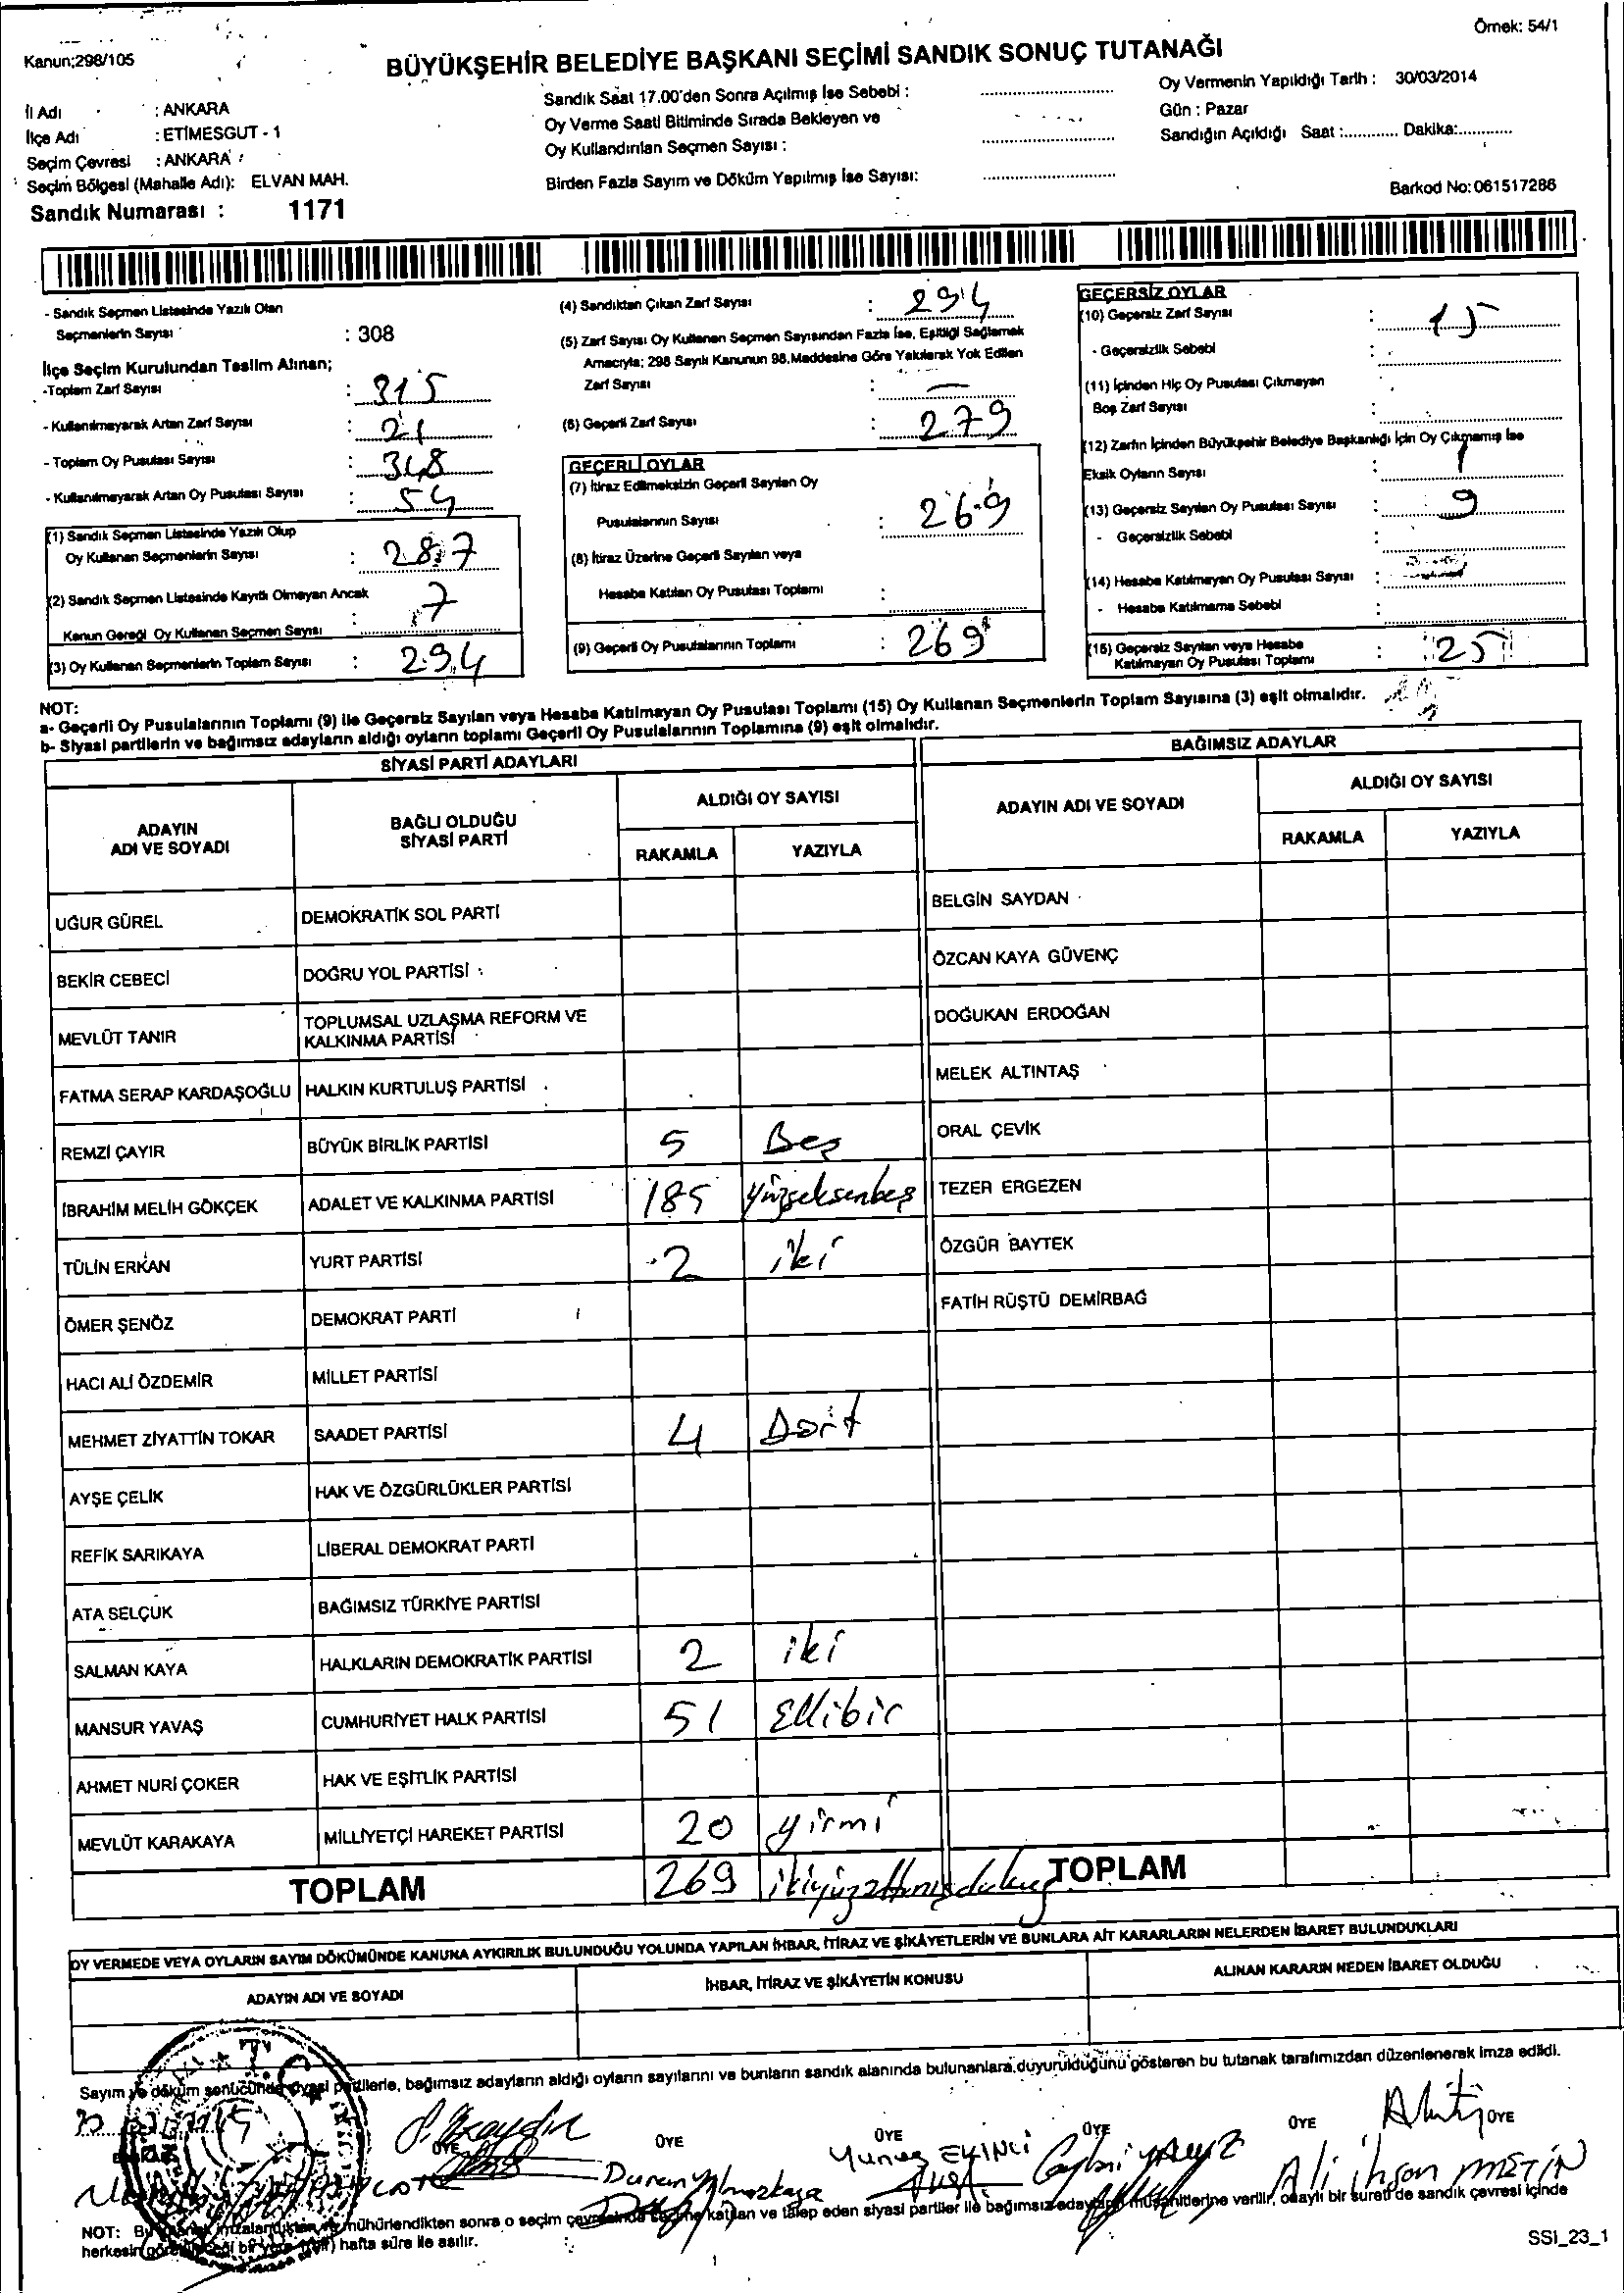 Örnek: 54/1
Kanun;298/105
BÜYÜKŞEHİR BELEDİYE BAŞKANI SEÇİMİ SANDIK SONUÇ TUTANAĞI
İl Adı : ANKARA
İlçe Adı : ETİMESGUT - 1
Seçim Çevresi : ANKARA
Seçim Bölgesi (Mahalle Adı): ELVAN MAH.
Sandık Numarası : 1171
Sandık Saat 17.00'den Sonra Açılmış İse Sebebi :
Oy Verme Saati Bitiminde Sırada Bekleyen ve
Oy Kullandırılan Seçmen Sayısı :
Birden Fazla Sayım ve Döküm Yapılmış İse Sayısı:
Oy Vermenin Yapıldığı Tarih : 30/03/2014
Gün : Pazar
Sandığın Açıldığı Saat :............ Dakika:............
Barkod No: 061517286
- Sandık Seçmen Listesinde Yazılı Olan
Seçmenlerin Sayısı : 308
İlçe Seçim Kurulundan Teslim Alınan;
-Toplam Zarf Sayısı : 315
- Kullanılmayarak Artan Zarf Sayısı : 21
- Toplam Oy Pusulası Sayısı : 348
- Kullanılmayarak Artan Oy Pusulası Sayısı : 54
(1) Sandık Seçmen Listesinde Yazılı Olup
Oy Kullanan Seçmenlerin Sayısı : 287
(2) Sandık Seçmen Listesinde Kayıtlı Olmayan Ancak
Kanun Gereği Oy Kullanan Seçmen Sayısı : 7
(3) Oy Kullanan Seçmenlerin Toplam Sayısı : 294
(4) Sandıktan Çıkan Zarf Sayısı : 294
(5) Zarf Sayısı Oy Kullanan Seçmen Sayısından Fazla İse, Eşitliği Sağlamak
Amacıyla; 298 Sayılı Kanunun 98.Maddesine Göre Yakılarak Yok Edilen
Zarf Sayısı : —
(6) Geçerli Zarf Sayısı : 279
GEÇERLİ OYLAR
(7) İtiraz Edilmeksizin Geçerli Sayılan Oy
Pusulalarının Sayısı : 269
(8) İtiraz Üzerine Geçerli Sayılan veya
Hesaba Katılan Oy Pusulası Toplamı :
(9) Geçerli Oy Pusulalarının Toplamı : 269
GEÇERSİZ OYLAR
(10) Geçersiz Zarf Sayısı : 15
- Geçersizlik Sebebi :
(11) İçinden Hiç Oy Pusulası Çıkmayan
Boş Zarf Sayısı :
(12) Zarfın İçinden Büyükşehir Belediye Başkanlığı İçin Oy Çıkmamış İse
Eksik Oyların Sayısı : 1
(13) Geçersiz Sayılan Oy Pusulası Sayısı : 9
- Geçersizlik Sebebi :
(14) Hesaba Katılmayan Oy Pusulası Sayısı :
- Hesaba Katılmama Sebebi :
(15) Geçersiz Sayılan veya Hesaba
Katılmayan Oy Pusulası Toplamı : 25
NOT:
a- Geçerli Oy Pusulalarının Toplamı (9) ile Geçersiz Sayılan veya Hesaba Katılmayan Oy Pusulası Toplamı (15) Oy Kullanan Seçmenlerin Toplam Sayısına (3) eşit olmalıdır.
b- Siyasi partilerin ve bağımsız adayların aldığı oyların toplamı Geçerli Oy Pusulalarının Toplamına (9) eşit olmalıdır.
SİYASİ PARTİ ADAYLARI
BAĞIMSIZ ADAYLAR
ADAYIN ADI VE SOYADI
BAĞLI OLDUĞU SİYASİ PARTİ
ALDIĞI OY SAYISI
RAKAMLA YAZIYLA
ADAYIN ADI VE SOYADI
ALDIĞI OY SAYISI
RAKAMLA YAZIYLA
UĞUR GÜREL DEMOKRATİK SOL PARTİ BELGİN SAYDAN
BEKİR CEBECİ DOĞRU YOL PARTİSİ ÖZCAN KAYA GÜVENÇ
MEVLÜT TANIR TOPLUMSAL UZLAŞMA REFORM VE KALKINMA PARTİSİ DOĞUKAN ERDOĞAN
FATMA SERAP KARDAŞOĞLU HALKIN KURTULUŞ PARTİSİ MELEK ALTINTAŞ
REMZİ ÇAYIR BÜYÜK BİRLİK PARTİSİ 5 Beş ORAL ÇEVİK
İBRAHİM MELİH GÖKÇEK ADALET VE KALKINMA PARTİSİ 185 Yüzseksenbeş TEZER ERGEZEN
TÜLİN ERKAN YURT PARTİSİ 2 iki ÖZGÜR BAYTEK
ÖMER ŞENÖZ DEMOKRAT PARTİ FATİH RÜŞTÜ DEMİRBAĞ
HACI ALİ ÖZDEMİR MİLLET PARTİSİ
MEHMET ZİYATTİN TOKAR SAADET PARTİSİ 4 Dört
AYŞE ÇELİK HAK VE ÖZGÜRLÜKLER PARTİSİ
REFİK SARIKAYA LİBERAL DEMOKRAT PARTİ
ATA SELÇUK BAĞIMSIZ TÜRKİYE PARTİSİ
SALMAN KAYA HALKLARIN DEMOKRATİK PARTİSİ 2 iki
MANSUR YAVAŞ CUMHURİYET HALK PARTİSİ 51 Ellibir
AHMET NURİ ÇOKER HAK VE EŞİTLİK PARTİSİ
MEVLÜT KARAKAYA MİLLİYETÇİ HAREKET PARTİSİ 20 yirmi
TOPLAM 269 ikiyüzaltmışdokuz TOPLAM
OY VERMEDE VEYA OYLARIN SAYIM DÖKÜMÜNDE KANUNA AYKIRILIK BULUNDUĞU YOLUNDA YAPILAN İHBAR, İTİRAZ VE ŞİKÂYETLERİN VE BUNLARA AİT KARARLARIN NELERDEN İBARET BULUNDUKLARI
ADAYIN ADI VE SOYADI İHBAR, İTİRAZ VE ŞİKÂYETİN KONUSU ALINAN KARARIN NEDEN İBARET OLDUĞU
Sayım ve döküm sonucunda siyasi partilerle, bağımsız adayların aldığı oyların sayılarını ve bunların sandık alanında bulunanlara duyurulduğunu gösteren bu tutanak tarafımızdan düzenlenerek imza edildi.
T.C.
ÜYE ÜYE ÜYE ÜYE ÜYE ÜYE
Yunus EKİNCİ
Duran Yılmazkaya
Ali ihsan METİN
NOT: Bu tutanak imzalandıktan ve mühürlendikten sonra o seçim çevresinde seçime katılan ve talep eden siyasi partiler ile bağımsız adayların müşahitlerine verilir, onaylı bir sureti de sandık çevresi içinde
herkesin görebileceği bir yere (bir) hafta süre ile asılır.
SSI_23_1